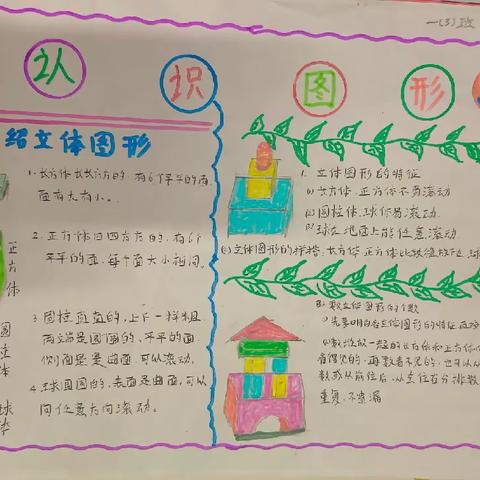 一(3)班
认 识 图 形
绍立体图形
1.长方体长长方方的,有6个平平的面,
面有大有小。
2.正方体四四方方的,有6个
平平的面,每个面大小相同。
3.圆柱直直的,上下一样粗
两头是圆圆的、平平的面
侧面是曲面,可以滚动。
4.球圆圆的,表面是曲面,可以
向任意方向滚动。
正方体
圆
柱
体
球
体
1.立体图形的特征
(1)长方体、正方体不易滚动
(2)圆柱体、球体易滚动.
(3)球在地面上能任意滚动.
(2)立体图形的拼搭,长方体、正方体比较
3.数立体图形的个数
先要明白立体图形的特征
有得见的,再数看不见的,也可以
数或从前往后,从左往右分排数
重复,不遗漏